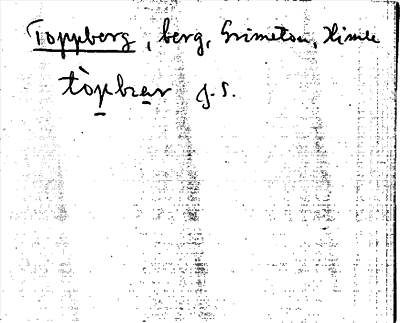 Toppberg, berg, Grimeton, Himle
tòpbrar J.S.